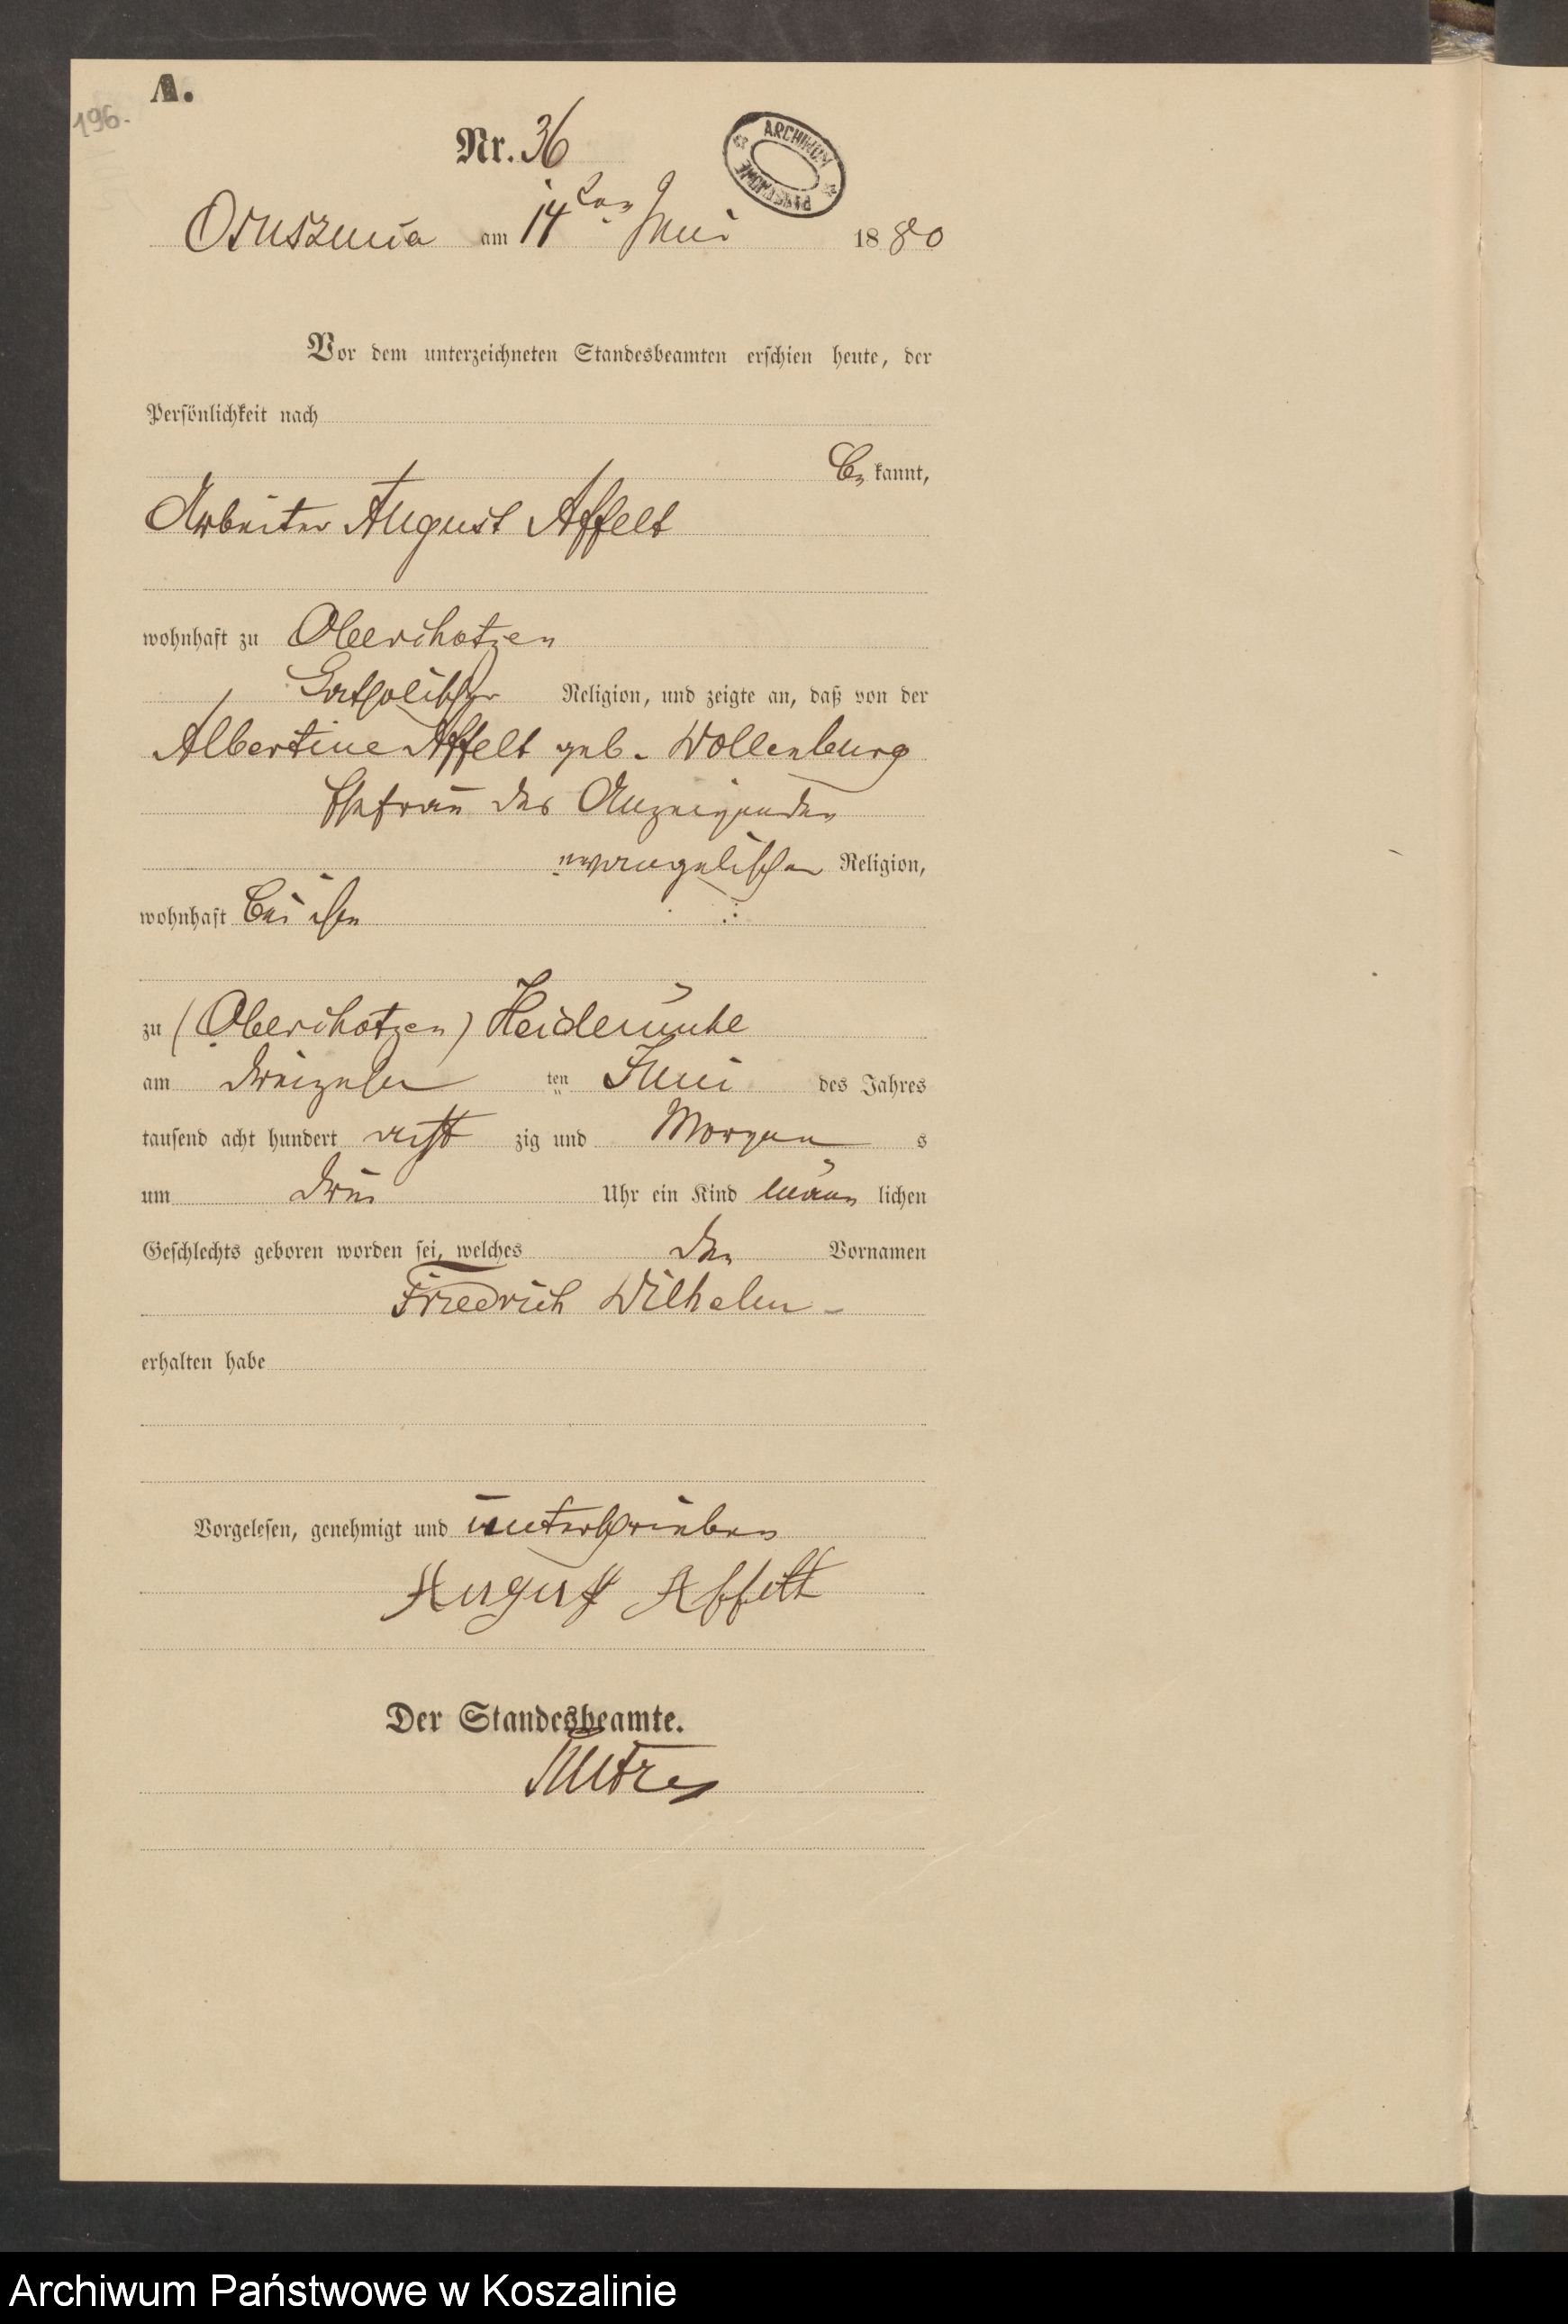 A.
196.
Nr. 36
ARCHIWUM PAŃSTWOWE
Osuszniça am 14ten Juni 1880
Vor dem unterzeichneten Standesbeamten erschien heute, der
Persönlichkeit nach
be kannt,
Arbeiter August Affelt
wohnhaft zu Oberchotzen
Katholischer Religion, und zeigte an, daß von der
Albertine Affelt geb. Wollenburg
Ehefrau des Anzeigenden
evangelischer Religion,
wohnhaft bei ihm
zu (Oberchotzen) Heidemühle
am dreizehn ten Juni des Jahres
tausend acht hundert acht zig und Morgen s
um drei Uhr ein Kind männ lichen
Geschlechts geboren worden sei, welches den Vornamen
Friedrich Wilhelm
erhalten habe
Vorgelesen, genehmigt und unterschrieben
August Affelt
Der Standesbeamte.
Archiwum Państwowe w Koszalinie